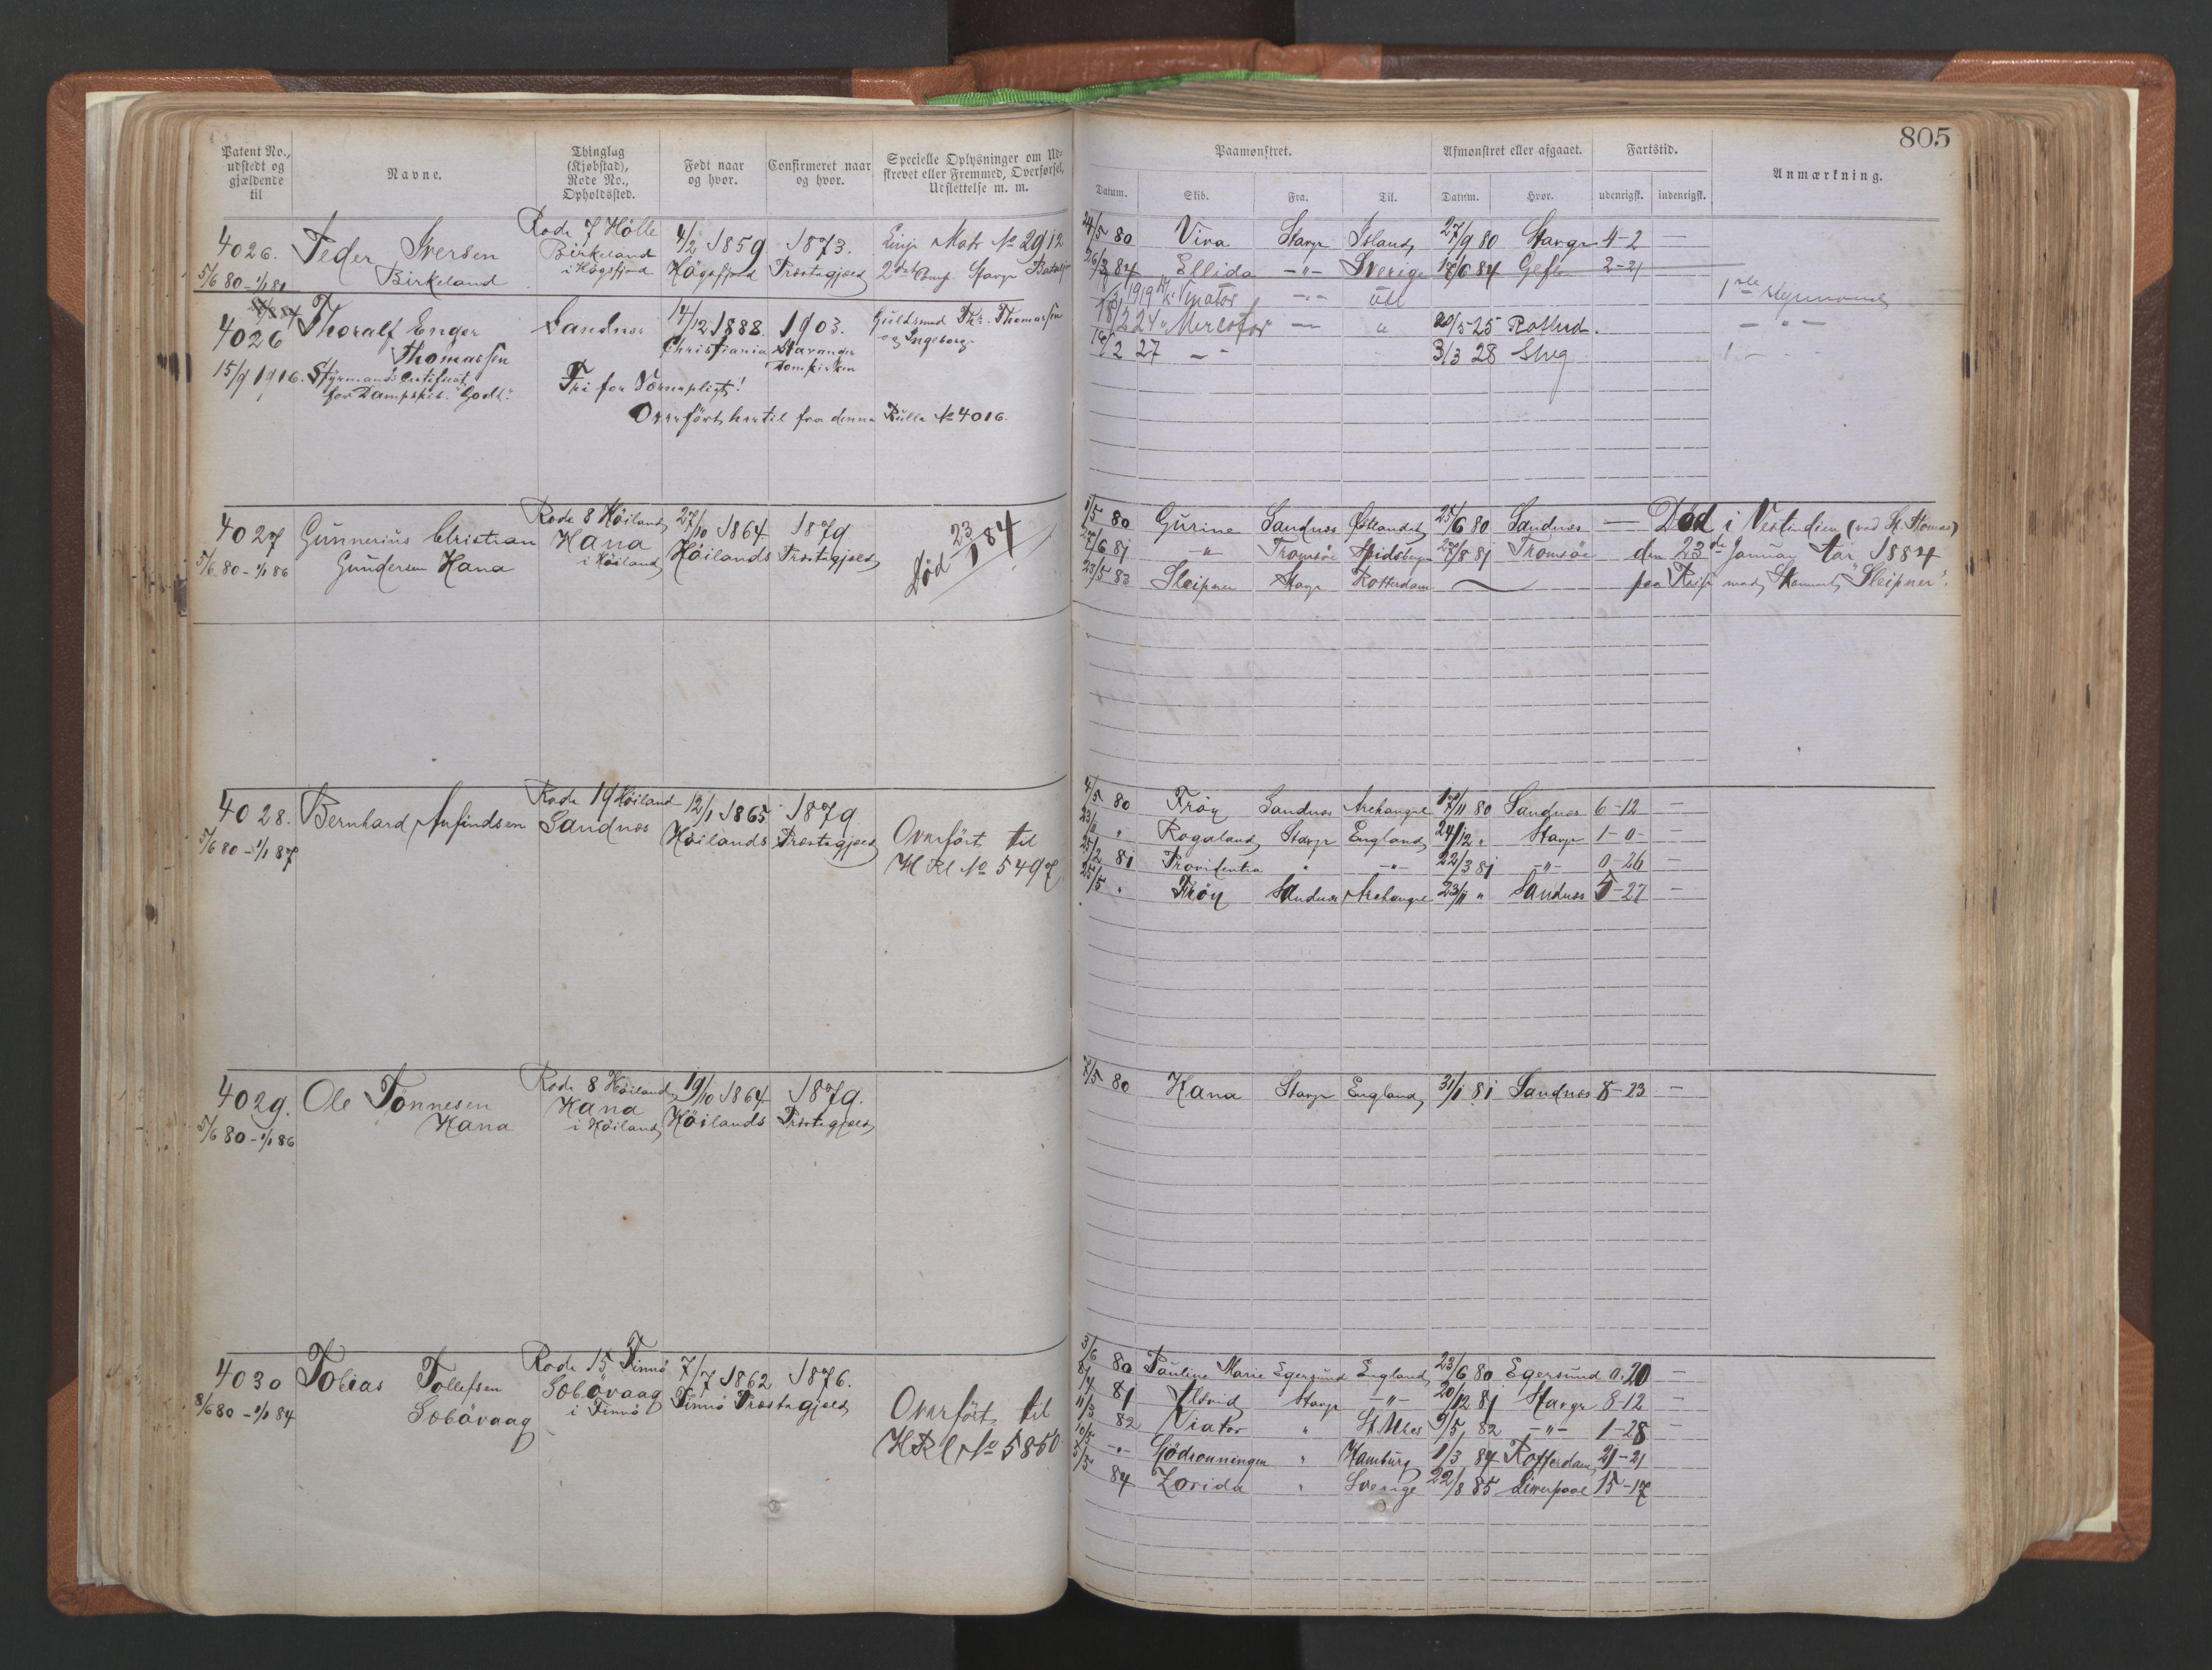 805
Patent No., udstedt og gjældende til
Navne.
Thinglag (Kjøbstad), Rode No., Opholdssted.
Født naar og hvor.
Confirmeret naar og hvor.
Specielle Oplysninger om Udskrevet eller Fremmed, Overførsel, Udslettelse m. m.
Paamønstret.
Afmønstret eller afgaaet.
Fartstid.
Anmærkning.
Datum. Skib. Fra. Til. Datum. Hvor. udenrigsk. indenrigsk.
4026. Peder Iversen Rode 7 Hölle 4/2 1859 1873. Linje Matr No 2912
5/6 80 - 1/1 81 Birkeland Birkeland i Högsfjord Högsfjord Præstegjæld 2det Comp Stavgr Batalj
24/5 80 Viva Stavgr Island 27/9 80 Stavgr 4-2 —
26/3 84 Ellida -"- Sverige 18/6 84 Gefle 2-21
4026 Thoralf Enger Thomassen Sandnes 14/12 1888. 1903. Guldsmed Th. Thomassen
Christiania Stavanger Domkirken og Ingeborg.
15/9 1916. Styrmands Certifikat for Dampskib. "Godt". Fri for Værnepligt!
Overfört hertil fra denne Rulle No 4016.
1919 Viator -"- Udl 1ste Styrmand
18/2 24 " Mercator — " 20/5 25 Rotterd. - " -
16/2 27 - " - 3/3 28 Shg
4027 Gunnerius Christian Rode 8 Höiland 27/10 1864 1879
5/6 80 - 1/1 86 Gundersen Hana Hana i Höiland Höilands Præstegjæld Död 23/1 84
1/5 80 Gurine Sandnes Østlandet 25/6 80 Sandnes — Död i Vestindien (ved St. Thomas)
27/6 81 " Tromsöe Spidsbergen 27/8 81 Tromsöe den 23de Januar 1884
23/5 83 Sleipner Stavgr Rotterdam — paa Reise med Skonnert "Sleipner".
4028. Bernhard Anfindsen Rode 19 Höiland 12/1 1865 1879
5/6 80 - 1/1 87 Sandnes Höilands Præstegjæld Overfört til
H Rl No 5497
4/5 80 Fröy Sandnes Archangel 17/11 80 Sandnes 6-12 —
23/11 " Rogaland Stavgr England 24/12 " Stavgr 1-0 —
25/2 81 Providentia " -"- 22/3 81 -"- 0-26 —
25/5 " Fröy Sandnes Archangel 23/11 " Sandnes 5-27 —
4029. Ole Tönnesen Rode 8 Höiland 19/10 1864 1879.
5/6 80 - 1/1 86 Hana Hana i Höiland Höilands Præstegjæld
7/5 80 Hana Stavgr England 31/1 81 Sandnes 8-23 —
4030 Tobias Tollefsen Rode 15 Finnö 7/7 1862 1876.
8/6 80 - 1/1 84 Sobövaag Sobövaag i Finnö Finnö Præstegjæld Overfört til
H Rl No 5850
3/6 80 Pauline Marie Egersund England 23/6 80 Egersund 0-20 —
8/4 81 Alsvid Stavgr -"- 20/12 81 Stavgr 8-12 —
11/3 82 Viator " St Ubes 9/5 82 -"- 1-28 —
10/5 -"- Sjödronningen " Hamburg 1/3 84 Rotterdam 21-21
5/5 84 Zorida " Sverige 22/8 85 Liverpool 15-17